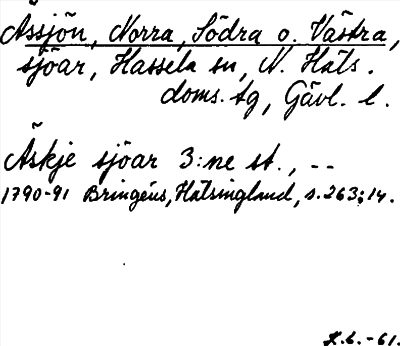 Ässjön, Norra, Södra o. Västra,
sjöar, Hassela sn, N. Häls.
doms. tg, Gävl. l.
Äskje sjöar 3:ne st., --
1790-91 Bringéus, Hälsingland, s. 263; 14.
K.L.-61.